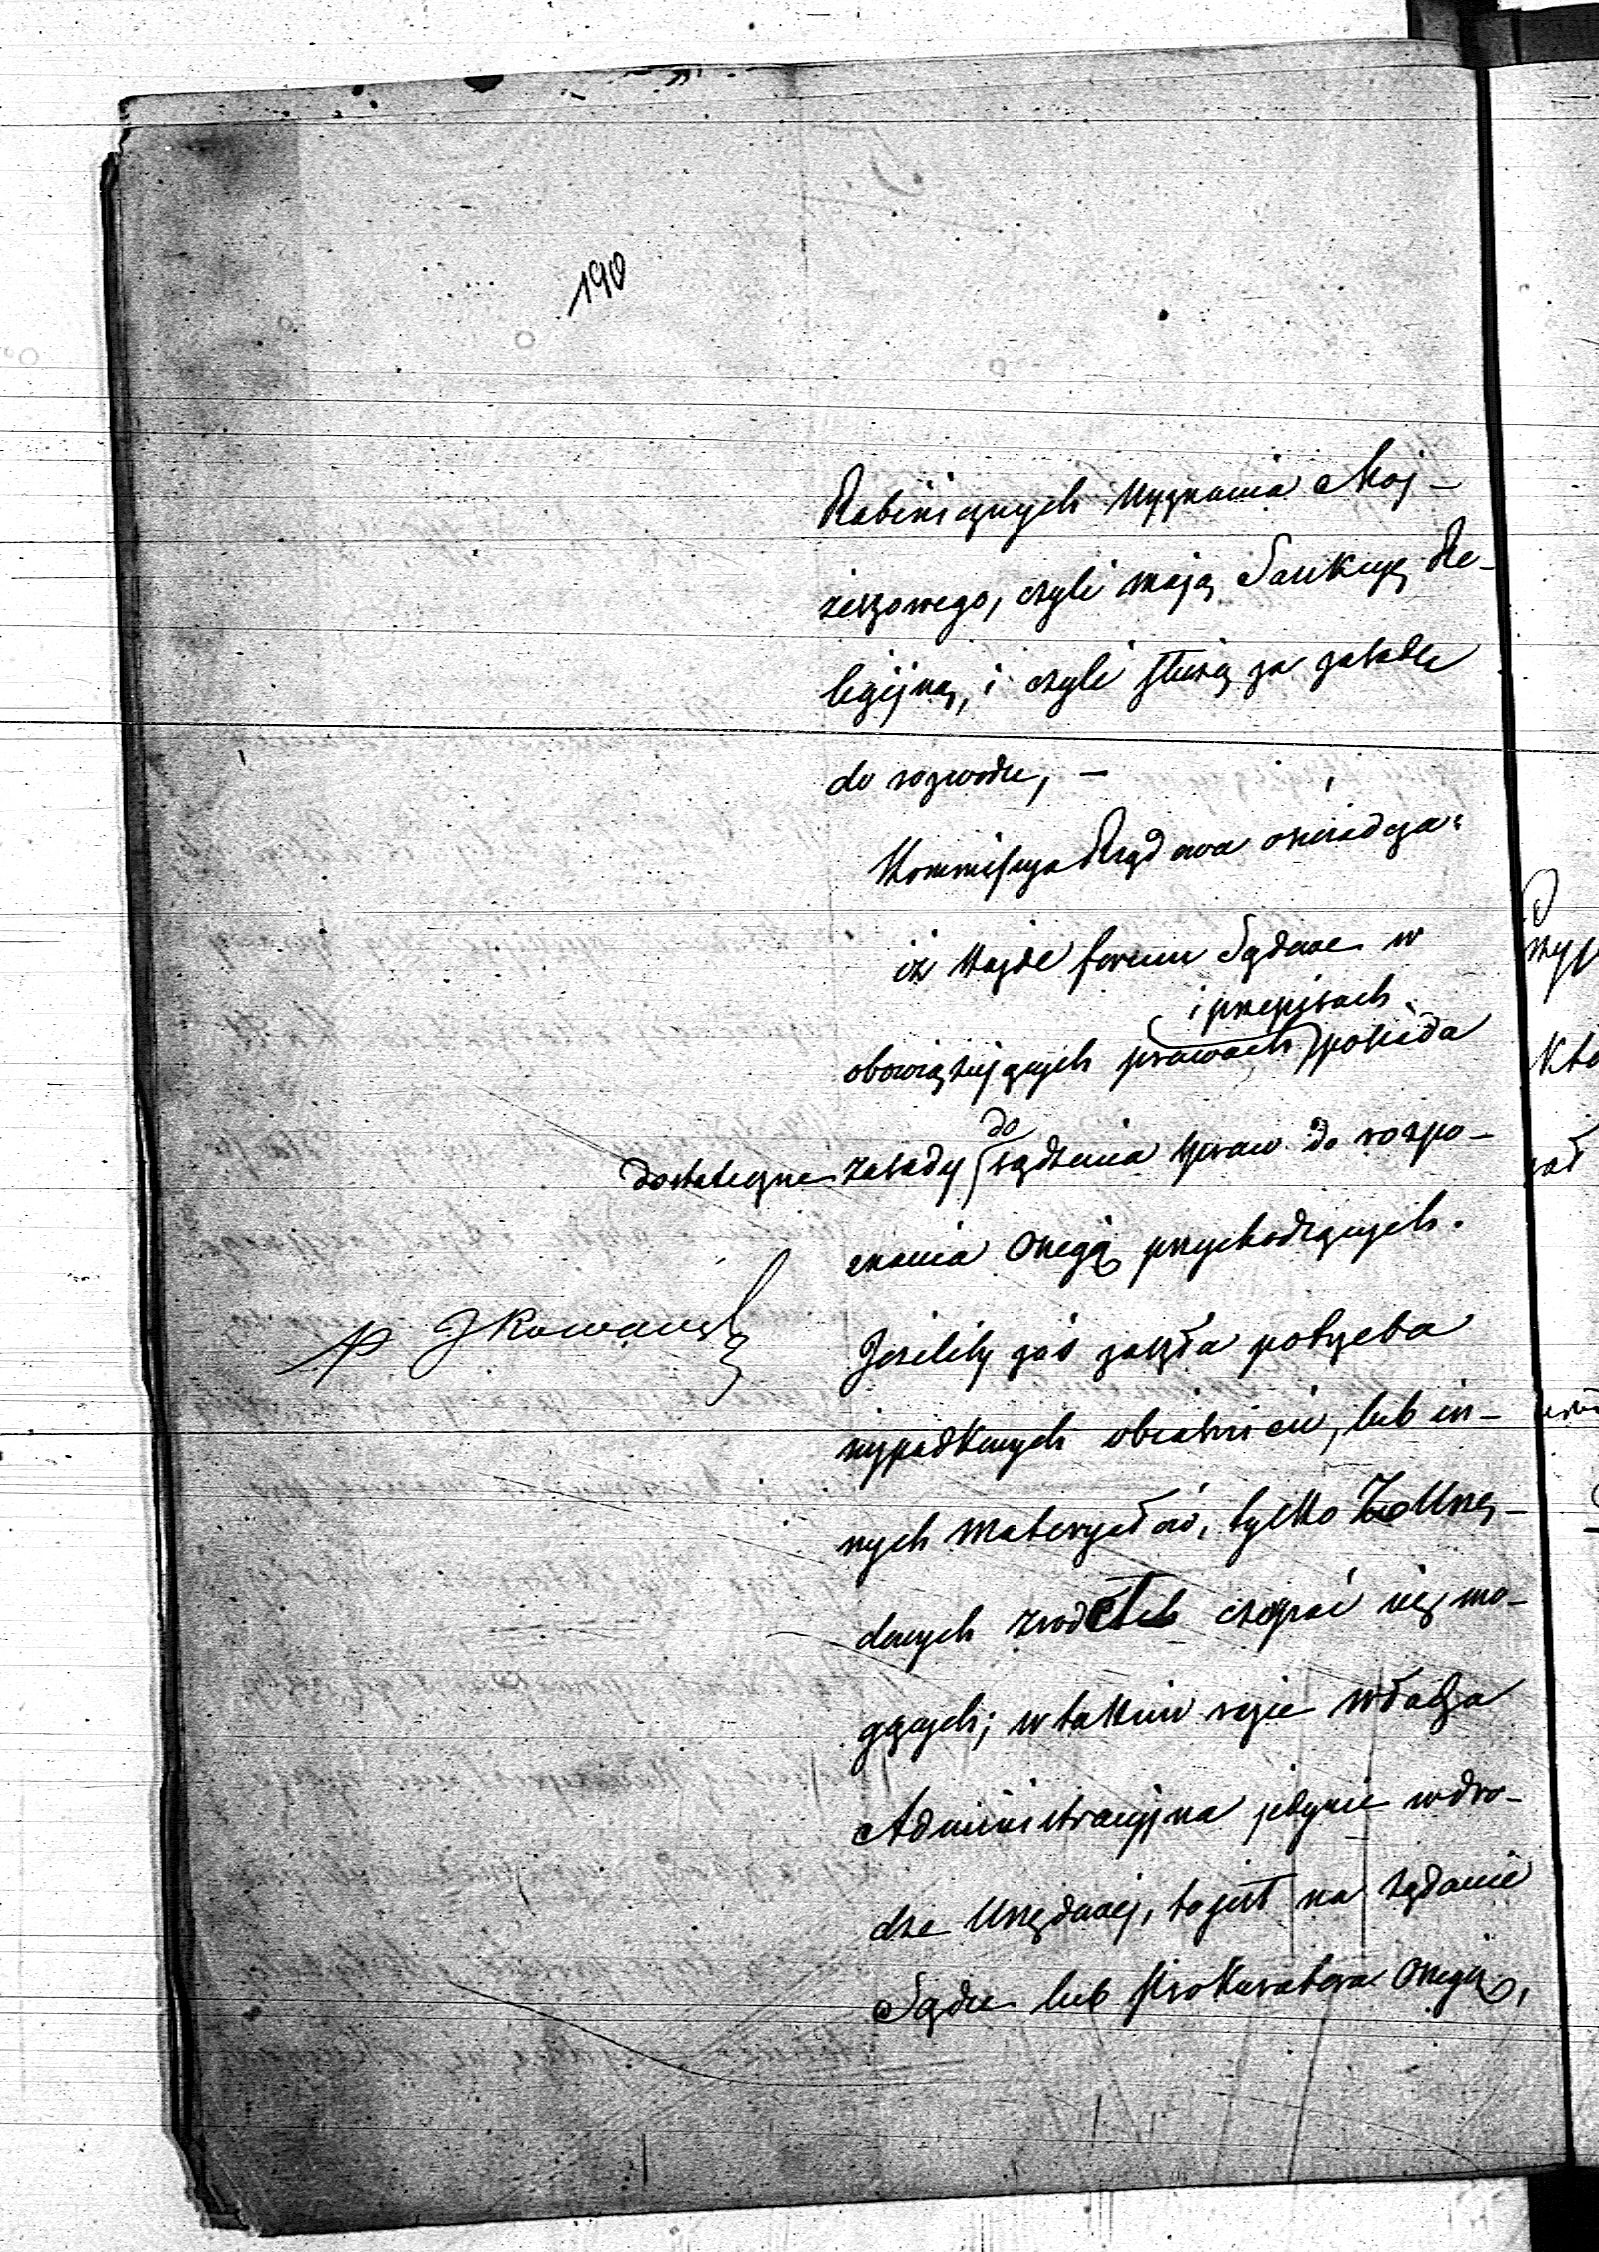 190
Rabinicznych Wyznania Moj-
żeszowego, czyli mają Sankcyą Re-
ligijną, i czyli służą za zasadę
do rozwodu, –
Kommissya Rządowa oświadcza:
iż każde forum Sądowe w
i przepisach
obowiązujących prawach posiada
do
dostateczne zasady sądzenia spraw do rozpo-
znania onegą przychodzących.
Jeżeliby zaś zaszła potrzeba
wypadkowych objaśnień, lub in-
nych materyałów, tylko z Urzę-
dowych źródeł czerpać się mo-
gących; w takim razie władza
Administracyjna jedynie w dro-
dze Urzędowej, to jest na żądanie
Sądu lub Prokuratora onegoż,